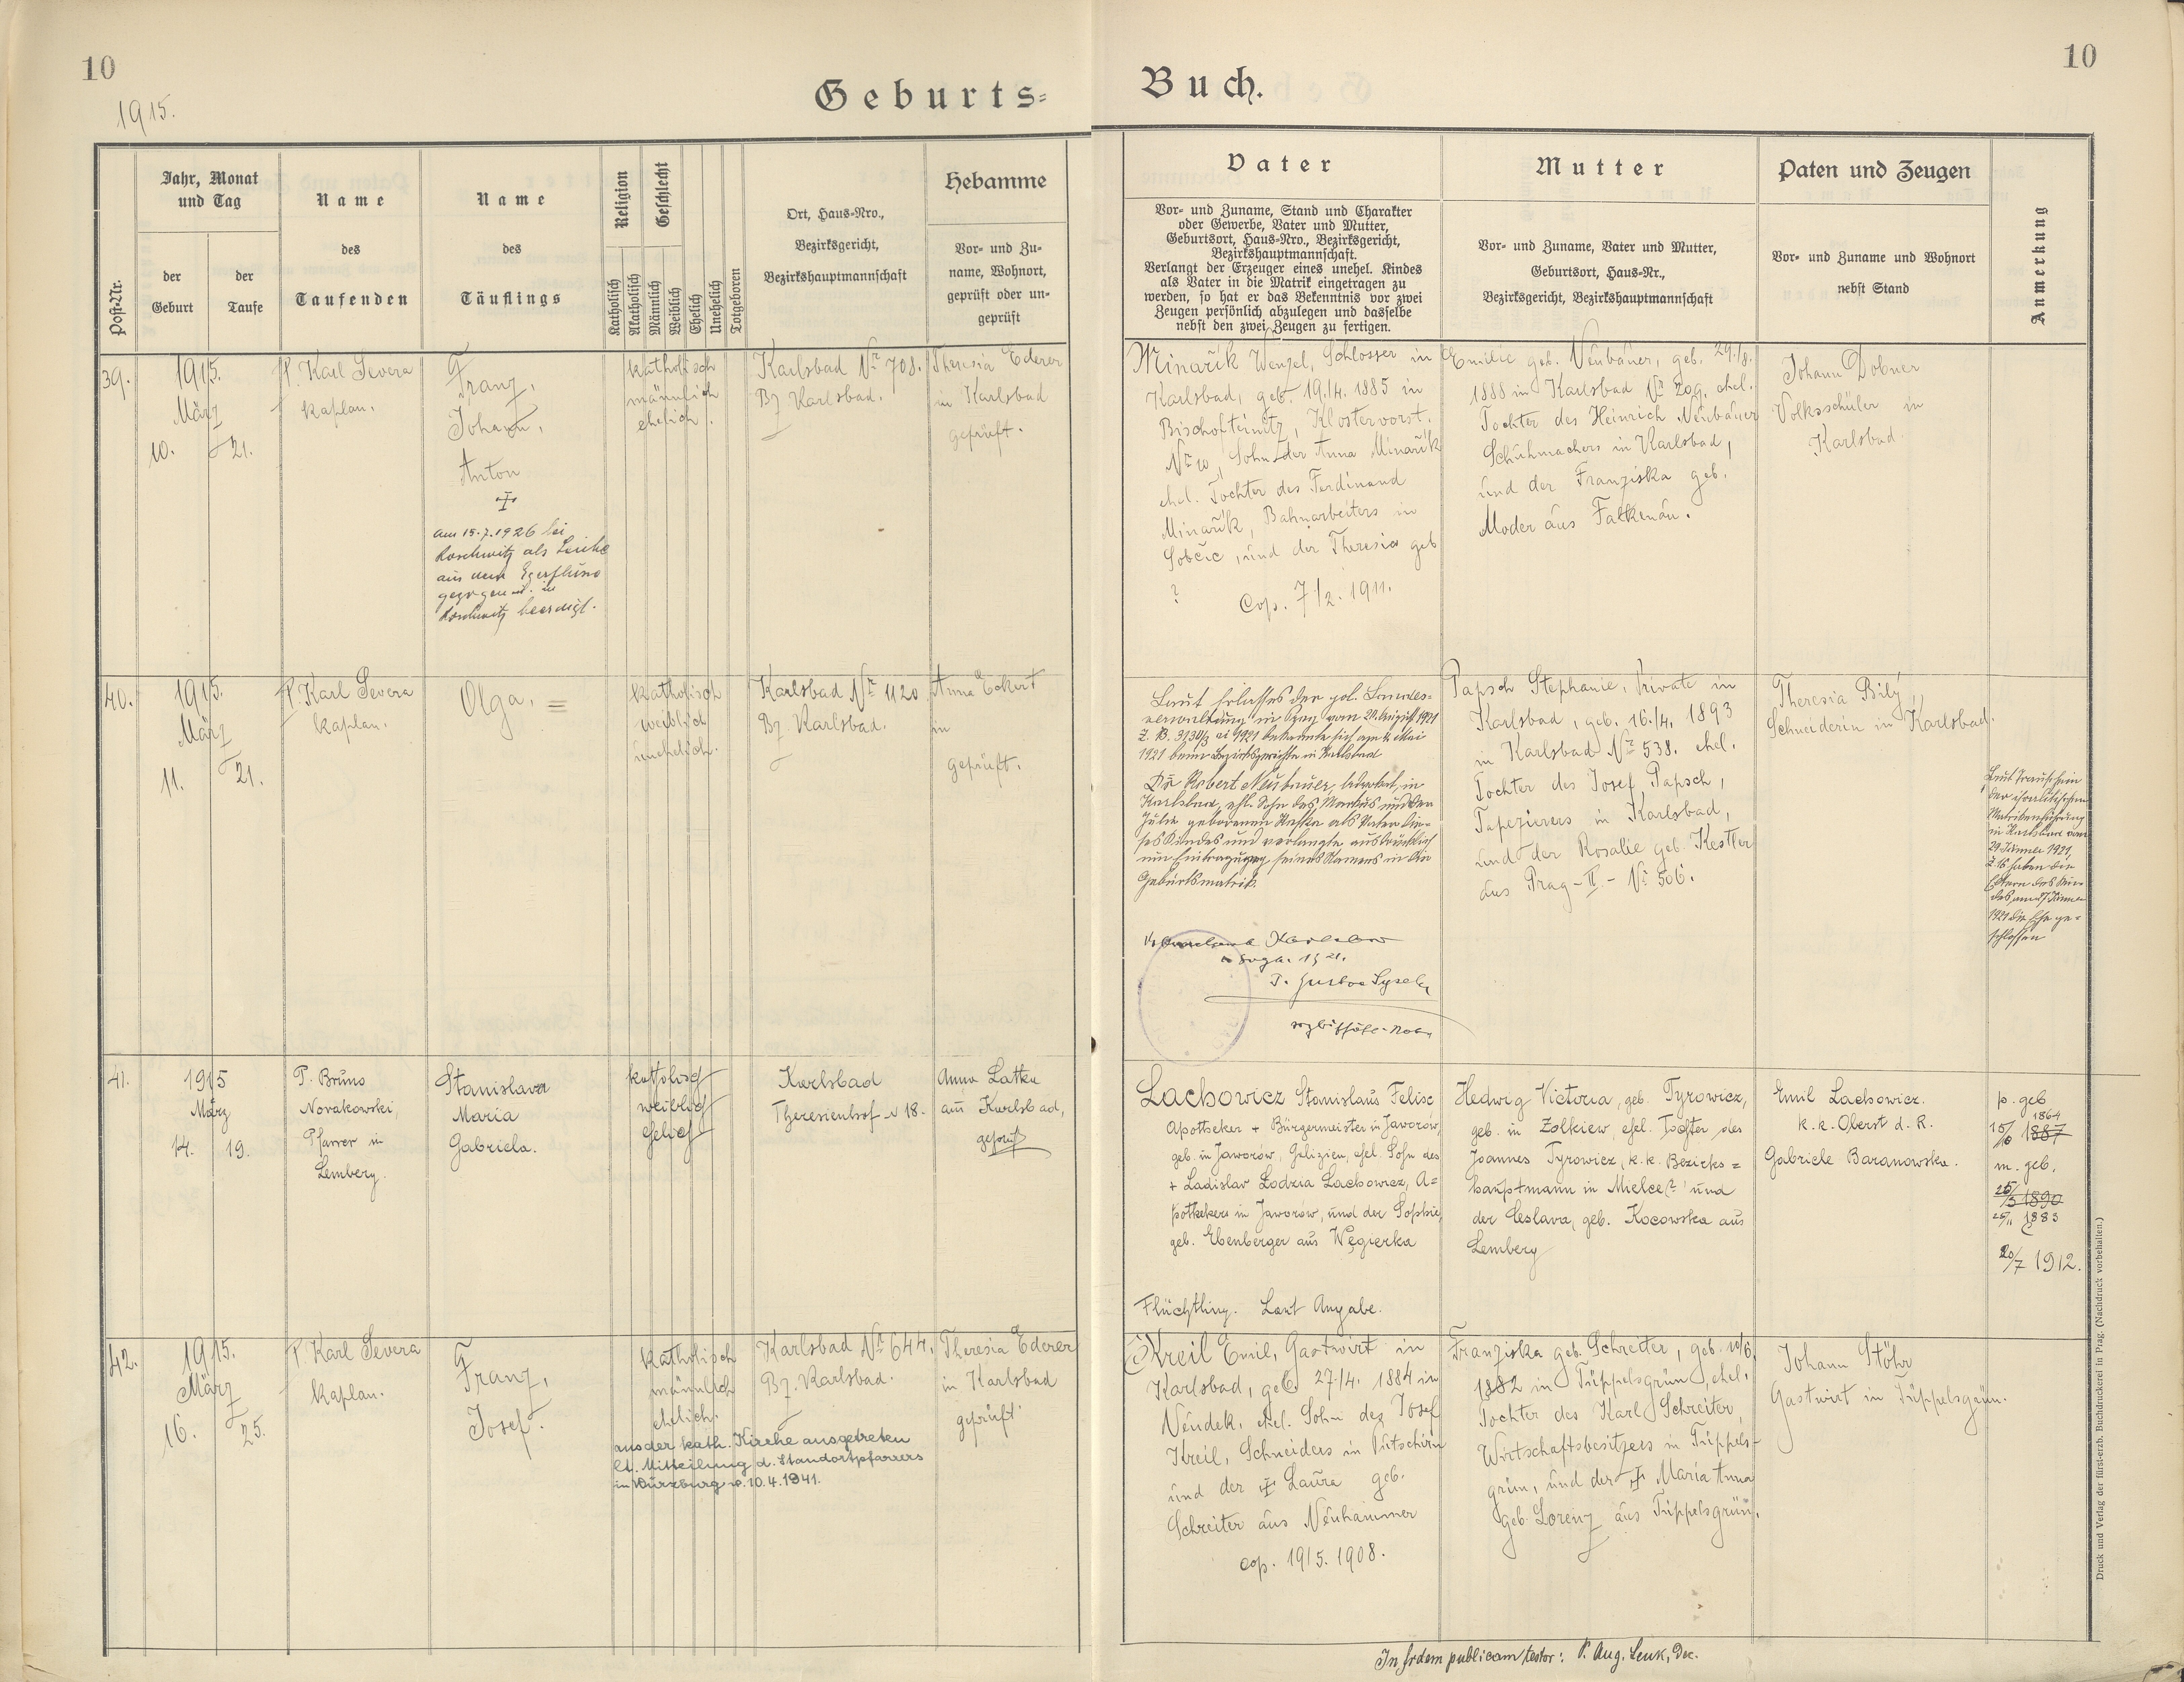 10
1915.
Geburts=
Buch.
10
Post-Nr.
Jahr, Monat
und Tag
der
Geburt
der
Taufe
Name
des
Taufenden
Name
des
Täuflings
Religion
Katholisch
Akatholisch
Geschlecht
Männlich
Weiblich
Ehelich
Unehelich
Totgeboren
Ort, Haus-Nro.,
Bezirksgericht,
Bezirkshauptmannschaft
Hebamme
Vor- und Zu-
name, Wohnort,
geprüft oder un-
geprüft
Vater
Vor- und Zuname, Stand und Charakter
oder Gewerbe, Vater und Mutter,
Geburtsort, Haus-Nro., Bezirksgericht,
Bezirkshauptmannschaft.
Verlangt der Erzeuger eines unehel. Kindes
als Vater in die Matrik eingetragen zu
werden, so hat er das Bekenntnis vor zwei
Zeugen persönlich abzulegen und dasselbe
nebst den zwei Zeugen zu fertigen.
Mutter
Vor- und Zuname, Vater und Mutter,
Geburtsort, Haus-Nr.,
Bezirksgericht, Bezirkshauptmannschaft
Paten und Zeugen
Vor- und Zuname und Wohnort
nebst Stand
Anmerkung
39.
1915.
März
10. 21.
P. Karl Severa
Kaplan.
Franz,
Johann,
Anton
am 15.7.1926 bei
Roschwitz als Leiche
aus dem Egerfluss
gezogen u. in
Roschwitz beerdigt.
katholisch
männlich
ehelich.
Karlsbad Nr 708.
Bz. Karlsbad.
Theresia Ederer
in Karlsbad
geprüft.
Minařik Wenzel, Schlosser in
Karlsbad, geb. 19/4. 1885 in
Bischofteinitz, Klostervorst.
Nr 10, Sohn der Anna Minařik
ehel. Tochter des Ferdinand
Minařik, Bahnarbeiters in
Sobčic, und der Theresia geb
?
Cop. 7/2. 1911.
Emilie geb. Neubauer, geb. 29./8.
1888 in Karlsbad Nr 209, ehel.
Tochter des Heinrich Neubauer
Schuhmachers in Karlsbad,
und der Franziska geb.
Moder aus Falkenau.
Johann Dobner
Volksschüler in
Karlsbad.
40.
1915.
März
11. 21.
P. Karl Severa
Kaplan.
Olga. =
katholisch
weiblich
unehelich.
Karlsbad Nr 1120
Bz. Karlsbad.
Anna Eckert
in
geprüft.
Laut Erlasses der pol. Landes-
verwaltung in Prag vom 20. August 1921
Z. B. 3130/3 ai 1921 bekannte sich am 4. Mai
1921 beim Bezirksgerichte in Karlsbad
Dr Robert Neubauer, Advokat, in
Karlsbad, ehl. Sohn des Markus und der
Julie geborenen als Vater die-
ses Kindes und verlangte ausdrücklich
um Eintragung seines Namens in die
Geburtsmatrik.
Papsch Stephanie, Private in
Karlsbad, geb. 16./4. 1893
in Karlsbad Nr 538. ehel.
Tochter des Josef Papsch,
Tapezierers in Karlsbad,
und der Rosalie geb. Kestler
aus Prag-II.- Nr 506.
Theresia Bilý,
Schneiderin in Karlsbad.
Laut Trauschein
der israelitischen
Matrikenführung
in Karlsbad vom
29 Jänner 1921,
Z. 16 haben die
Eltern des Kin-
des am 27 Jänner
1921 die Ehe ge-
schlossen
41.
1915
März
14. 19.
P. Bruno
Novakowski,
Pfarrer in
Lemberg.
Stanislava
Maria
Gabriela.
katholisch
weiblich
ehelich
Karlsbad
Theresienhof N 18.
Anna Latka
aus Karlsbad,
geprüft
Lachowicz Stanislaus Felix
Apotheker + Bürgermeister in Jaworów,
geb. in Jaworów, Galizien, ehel. Sohn des
+ Ladislav Lodzia Lachowicz, A=
pothekers in Jaworów, und der Sophie,
geb. Ebenberger aus Węgierka
Flüchtling. Laut Angabe.
Hedwig Victoria, geb. Tyrowicz,
geb. in Zolkiew, ehel. Tochter des
Joannes Tyrowicz, k.k. Bezirks=
hauptmann in Mielce(?) und
der Ceslava, geb. Kocowska aus
Lemberg
Emil Lachowicz.
k.k. Oberst d. R.
Gabriele Baranowska.
p. geb
1864
15/6 1887
m. geb.
25/5 1890
25/11 1883
20/7 1912.
42.
1915.
März
16. 25.
P. Karl Severa
Kaplan.
Franz,
Josef.
katholisch
männlich
ehelich.
aus der kath. Kirche ausgetreten
lt. Mitteilung d. Standortpfarrers
in Würzburg v. 10.4.1941.
Karlsbad Nr 644.
Bz. Karlsbad.
Theresia Ederer
in Karlsbad
geprüft
Kreil Emil, Gastwirt in
Karlsbad, geb. 27./4. 1884 in
Neudek, ehel. Sohn des Josef
Kreil, Schneiders in Putschirn
und der Laura geb.
Schreiter aus Neuhammer
cop. 19/5. 1908.
Franziska geb. Schreiter, geb. 10/6.
1882 in Tüppelsgrün, ehel.
Tochter des Karl Schreiter,
Wirtschaftsbesitzers in Tüppels-
grün, und der Maria Anna
geb. Lorenz aus Tüppelsgrün.
Johann Stöhr
Gastwirt in Tüppelsgrün.
In fidem publicam testor: P. Aug. Leuk, Dec.
Druck und Verlag der fürst-erzb. Buchdruckerei in Prag. (Nachdruck vorbehalten.)